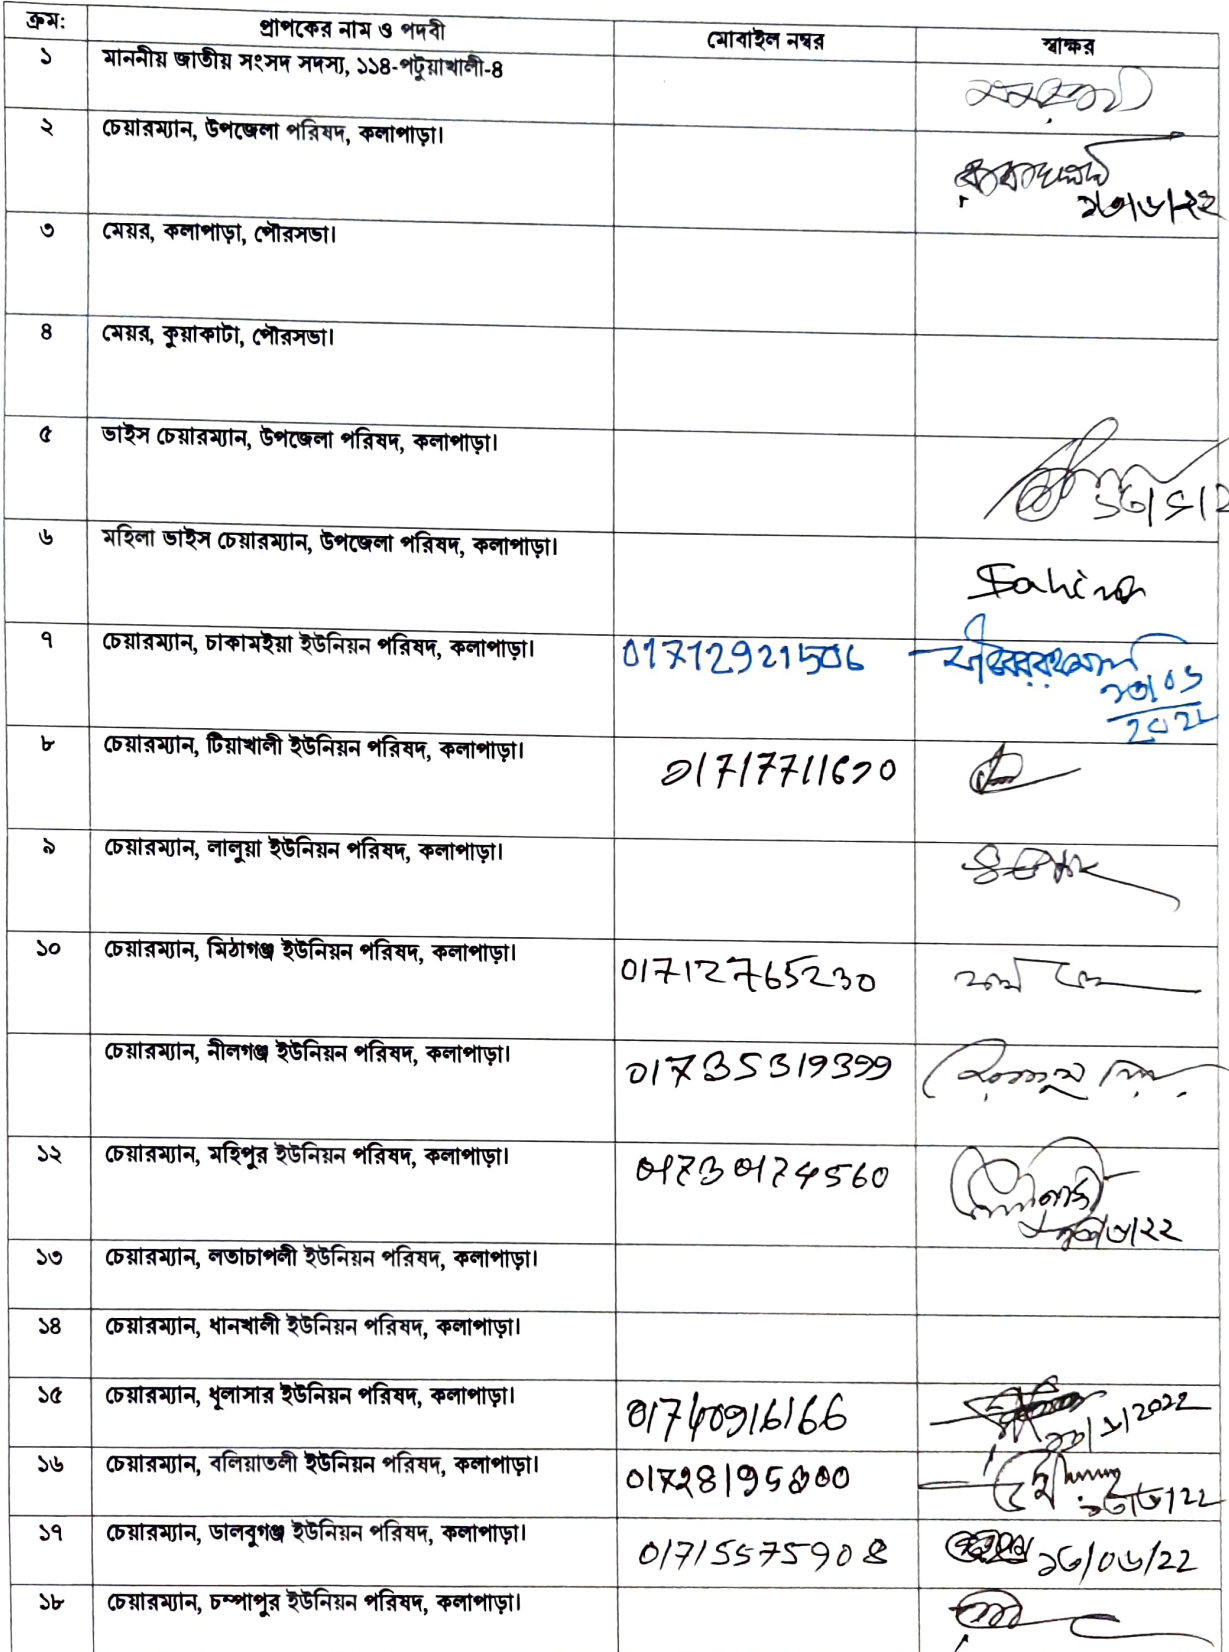 ক্রম: প্রাপকের নাম ও পদবী মোবাইল নম্বর স্বাক্ষর
১ মাননীয় জাতীয় সংসদ সদস্য, ১১৪-পটুয়াখালী-৪
২ চেয়ারম্যান, উপজেলা পরিষদ, কলাপাড়া।
১৩/৬/২২
৩ মেয়র, কলাপাড়া, পৌরসভা।
৪ মেয়র, কুয়াকাটা, পৌরসভা।
৫ ভাইস চেয়ারম্যান, উপজেলা পরিষদ, কলাপাড়া।
৬ মহিলা ভাইস চেয়ারম্যান, উপজেলা পরিষদ, কলাপাড়া।
৭ চেয়ারম্যান, চাকামইয়া ইউনিয়ন পরিষদ, কলাপাড়া। 01712921506
৮ চেয়ারম্যান, টিয়াখালী ইউনিয়ন পরিষদ, কলাপাড়া।
৯ চেয়ারম্যান, লালুয়া ইউনিয়ন পরিষদ, কলাপাড়া।
১০ চেয়ারম্যান, মিঠাগঞ্জ ইউনিয়ন পরিষদ, কলাপাড়া। 01712765230
চেয়ারম্যান, নীলগঞ্জ ইউনিয়ন পরিষদ, কলাপাড়া। 01735319399
১২ চেয়ারম্যান, মহিপুর ইউনিয়ন পরিষদ, কলাপাড়া। 01730174560
১৩ চেয়ারম্যান, লতাচাপলী ইউনিয়ন পরিষদ, কলাপাড়া।
১৪ চেয়ারম্যান, ধানখালী ইউনিয়ন পরিষদ, কলাপাড়া।
১৫ চেয়ারম্যান, ধূলাসার ইউনিয়ন পরিষদ, কলাপাড়া। 01740916166
১৬ চেয়ারম্যান, বলিয়াতলী ইউনিয়ন পরিষদ, কলাপাড়া।
১৭ চেয়ারম্যান, ডালবুগঞ্জ ইউনিয়ন পরিষদ, কলাপাড়া। 01715575908 ১৩/০৬/22
১৮ চেয়ারম্যান, চম্পাপুর ইউনিয়ন পরিষদ, কলাপাড়া।